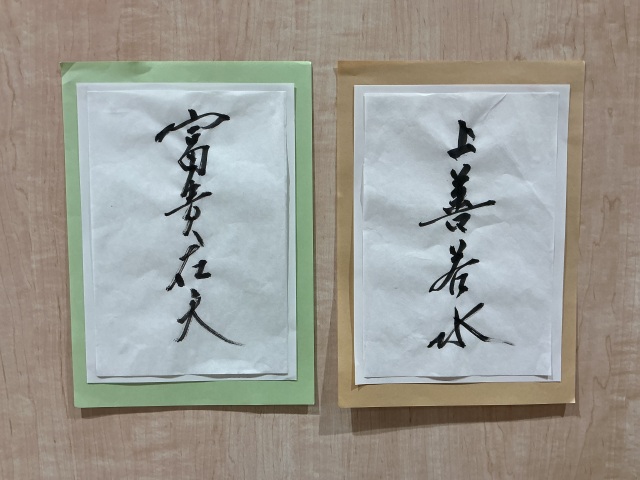 富貴在天
上善若水